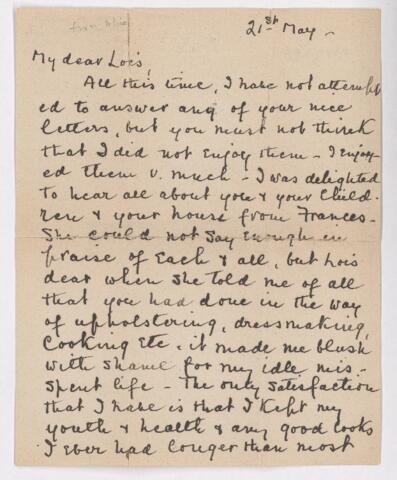 21st May -
My dear Lois,
All this time, I have not attempt
ed to answer any of your nice
letters, but you must not think
that I did not enjoy them - I enjoy-
ed them v. much - I was delighted
to hear all about you & your Child-
ren & your house from Frances -
She could not say enough in
praise of Each & all, but Lois
dear when she told me of all
that you had done in the way
of upholstering, dressmaking,
Cooking Etc, it made me blush
with shame for my idle mis-
spent life - The only satisfaction
that I have is that I kept my
youth & health & any good looks
I ever had longer than most